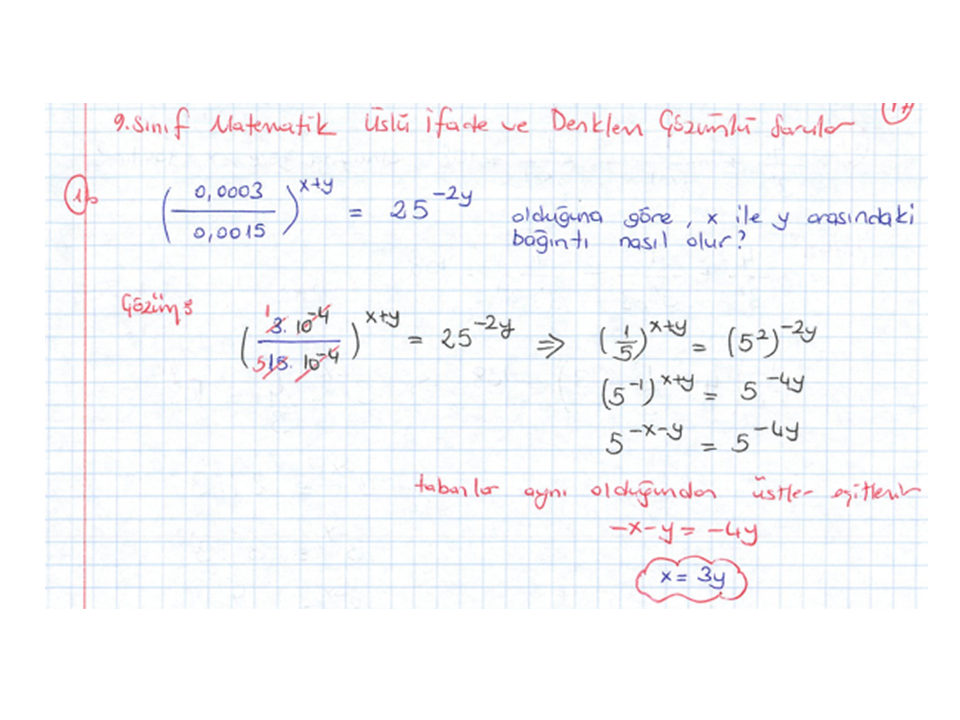 9.Sınıf Matematik Üslü İfade ve Denklem Çözümlü Sorular 17
1)
(0,0003 / 0,0015)^(x+y) = 25^(-2y) olduğuna göre, x ile y arasındaki
bağıntı nasıl olur?
Çözüm:
(1 3. 10^(-4) / 5 15. 10^(-4))^(x+y) = 25^(-2y) ⇒ (1/5)^(x+y) = (5^2)^(-2y)
(5^(-1))^(x+y) = 5^(-4y)
5^(-x-y) = 5^(-4y)
tabanlar aynı olduğundan üstler eşitlenir
-x-y = -4y
x = 3y